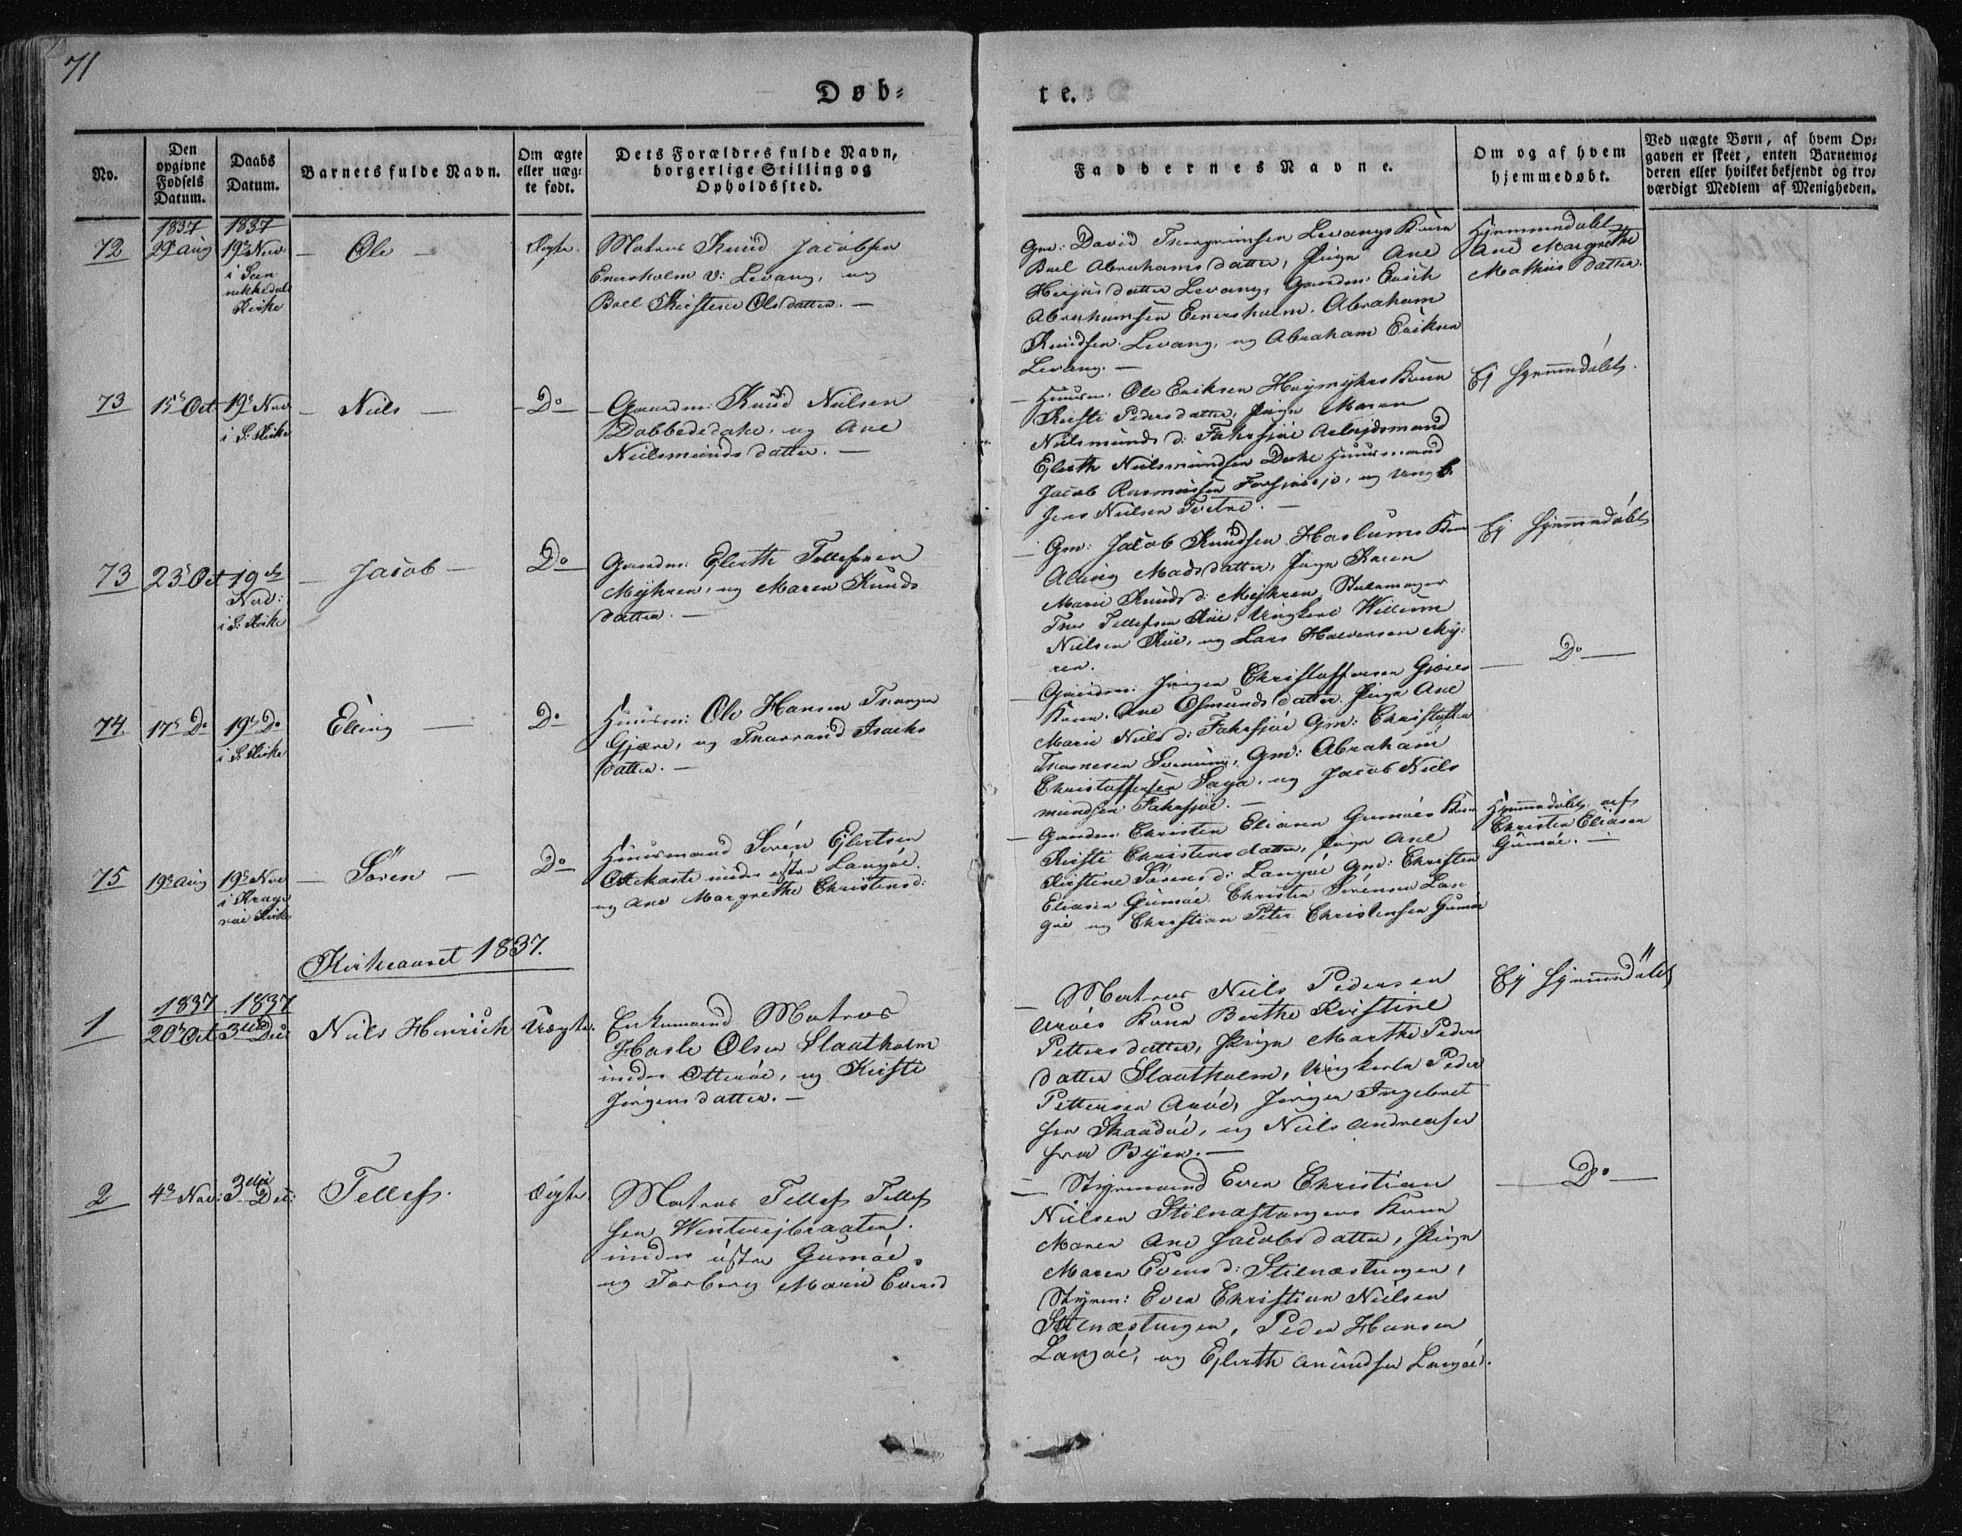 71
Døb-
te.
No.
Den opgivne Fødsels Datum.
Daabs Datum.
Barnets fulde Navn.
Om ægte eller uægte født.
Dets Forældres fulde Navn, borgerlige Stilling og Opholdssted.
Faddernes Navne.
Om og af hvem hjemmedøbt.
Ved uægte Børn, af hvem Opgaven er skeet, enten Barnemoderen eller hvilket bekjendt og troværdigt Medlem af Menigheden.
1837
1837
72
29 Aug
19de Nov
i San
nikkedals
Kirke
Ole
Ægte
Matros Knud Jacobsen
Enersholm v: Levang, og
Boel Kirstine Olsdatter. —
Gm: David Levangs Kone
Boel Abrahamsdatter, Pige Ane
datter Levang, Gaardm: Erich
Abrahamsen Enersholm, Abraham
Knudsen Levang, og Abraham Eriksen
Levang. —
Hjemmedøbt
Ane Margrethe
Mathiisdatter.
73
15de Oct
19de Nov
i S: Kirke
Niels
Do
Gaardm: Knud Nielsen
Dobbededake, og Ane
Nielsmundsdatter. —
Huusm: Ole Eriksen Høymyhrs Kone
Kirsti Pedersdatter, Pige Maren
Nielsmunds d: Farsjøe Arbeidsmand
Ejlerth Nielsmundsen Huusmand
Jacob Rasmussen og Ungk.
Jens Nielsen Tveitne. —
Ej hjemmedøbt.
73
23de Oct
19de
Nov:
i S: Kirke
Jacob
Do
Gaardm: Ejlerth Tellefsen
Myhren, og Maren Knuds
datter. —
Gm: Jacob Knudsen Haslums Kone
Madsdatter, Pige Karen
Marie Knuds d: Myhren,
Tellefsen Ungkarl Willum
Nielsen og Lars Halvorsen My-
ren.
Ej hjemmedøbt
74.
17de Do
19de Do
i S: Kirke
Elling
Do
Huusm: Ole Hansen
Gjære, og Isaks
datter. —
Gaardm: Jørgen Christoffersen
Kone Ane Osmundsdatter, Pige Ane
Marie Niels d: Farsjøe Gm: Christoffer
Gm: Abraham
Christoffersen og Jacob Niels
mundsen Farsjøe. —
Do
75
19de Aug
19de Nov
i Krage
røe Kirke
Søren
Do
Huusmand Søren Ejlertsen
under østre Langøe
og Ane Margrethe Christensd:
Gaardm: Christen Eliasen Gumøes Kone
Kirsti Christensdatter, Pige Ane
Kirstine Sørensd: Langøe Gm: Christen
Eliasen Gumøe Christen Sørensen Lan
gøe og Christian Peter Christensen Gumøe
Hjemmedøbt af
Christen Eliasen
Gumøe. —
Kirkeaaret 1837.
1837
1837
1
20de Oct
3die Dec:
Niels Henrich
Uægte.
Enkemand Matros
Olsen Slaatholm
under Otterøe, og Kirsti
Jørgensdatter. —
Matros Niels Pedersen
Arøes Kone Berthe Kristine
Pettersdatter, Pige Marthe Peders
datter Slaatholm, Ungkarle Peder
Pettersen Arøe, Jørgen Ingebret
sen Skaadøe, og Niels Andreasen
fra Byen. —
Ej hjemmedøbt
2
4de Nov:
3die Dec:
Tellef.
Ægte.
Matros Tellef Tellef
sen
under østre Gumøe,
og Torborg Marie Evensd
Styrmand Even Christian
Nielsen Stilnæstangens Kone
Maren Ane Jacobsdatter, Pige
Maren Evens d: Stilnæstangen,
Styrm: Even Christian Nielsen
Stilnæstangen, Peder Hansen
Langøe, og Ejlerth Amundsen Langøe.
Do